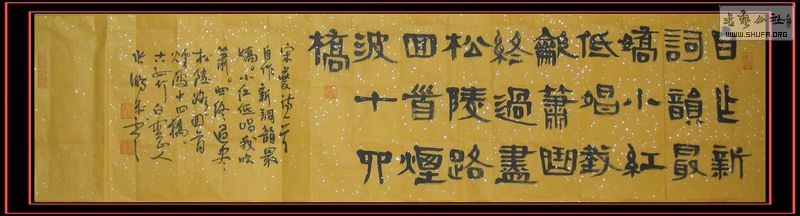 自作新
詞韻最
嬌小紅
低唱我
龡簫曲
終過盡
松陵路
回首煙
波十四
橋
宋姜夔詩一首
自作新詞韻最
嬌小紅低唱我吹
簫曲終過盡
松陵路回首
煙波十四橋
WWW.SHUFA.ORG